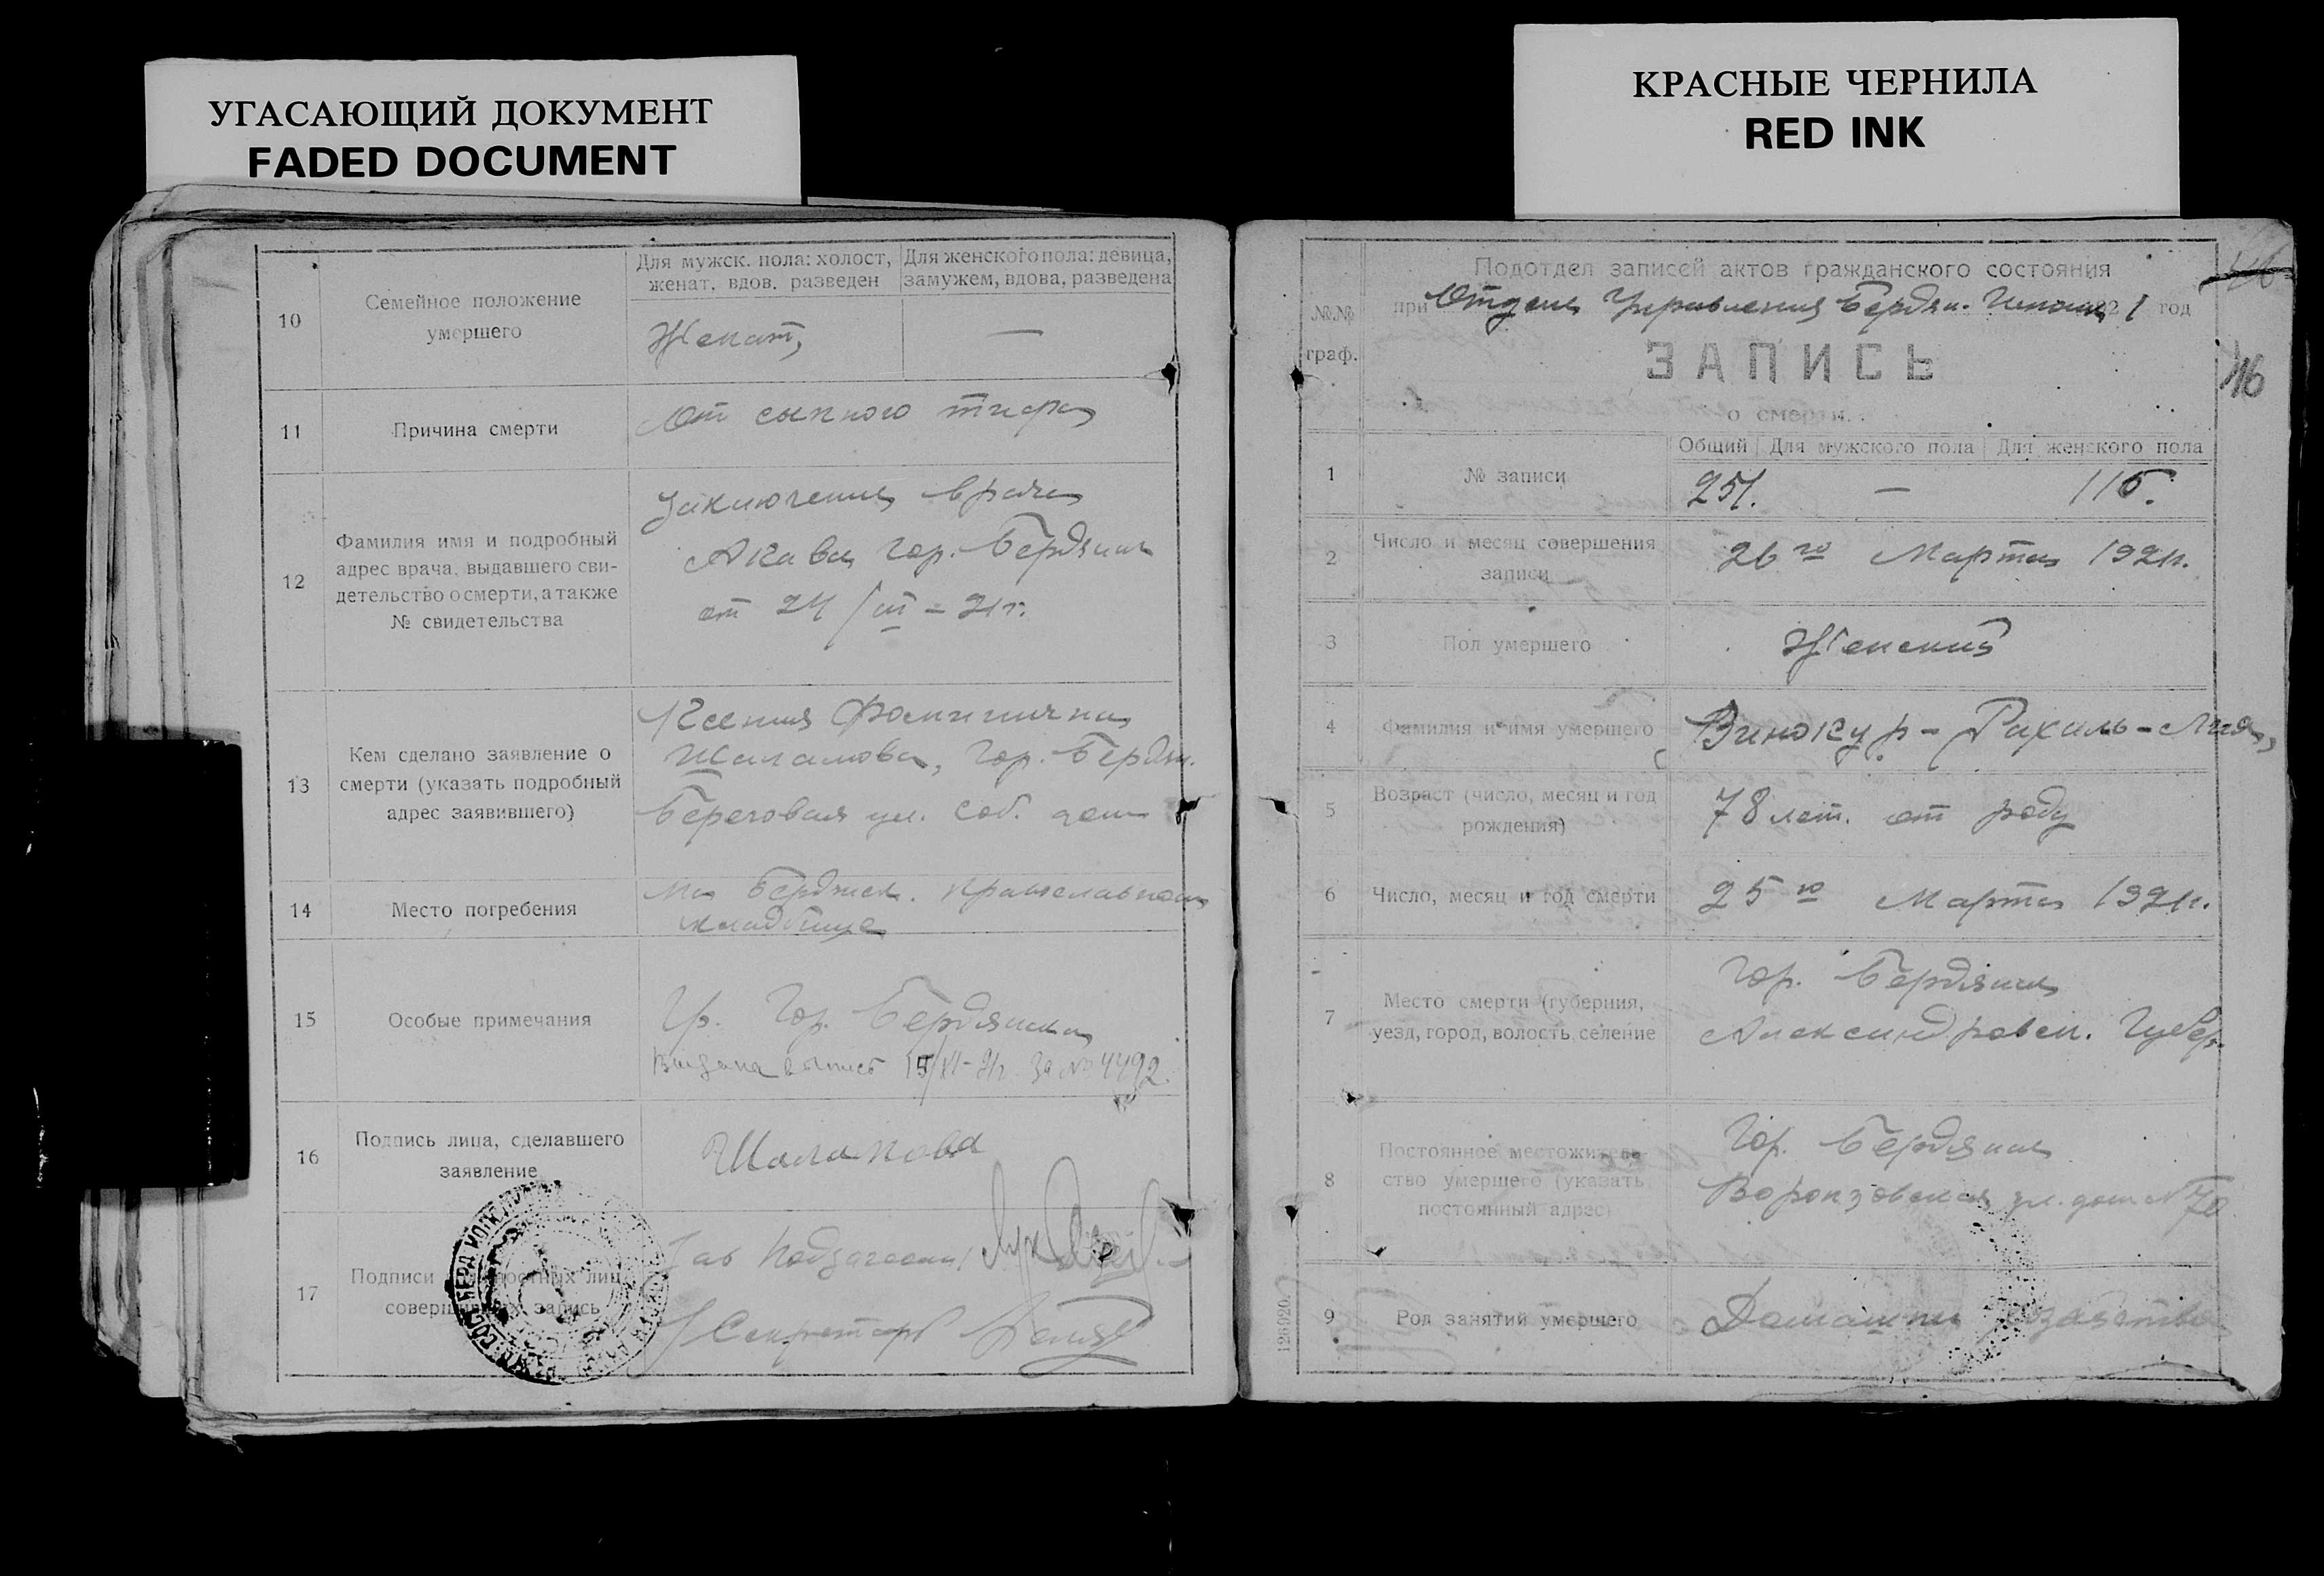 УГАСАЮЩИЙ ДОКУМЕНТ
FADED DOCUMENT
КРАСНЫЕ ЧЕРНИЛА
RED INK
10
Семейное положение
умершего
Для мужск. пола: холост,
женат, вдов. разведен
Для женского пола: девица,
замужем, вдова, разведена
Женат,
—
11
Причина смерти
От сыпного тифа
12
Фамилия имя и подробный
адрес врача, выдавшего сви-
детельство о смерти, а также
№ свидетельства
Заключение врача
Гор. Бердянск
от 24/III-21г.
13
Кем сделано заявление о
смерти (указать подробный
адрес заявившего)
Ксения
Гор. Бердян.
Береговая ул. соб. дом
14
Место погребения
На Бердянск. православном
кладбище
15
Особые примечания
Гр. Гор. Бердянска
Выдана выпись 15/XI-21г. За № 4492.
16
Подпись лица, сделавшего
заявление
17
Подписи должностных лиц
совершивших запись
Зав
Секретарь
Подотдел записей актов гражданского состояния
при Отделе Управления Бердян. 1 год
№№
граф.
ЗАПИСЬ
о смерти.
116
1
№ записи
Общий
Для мужского пола
Для женского пола
251.
—
116.
2
Число и месяц совершения
записи
26го Марта 1921г.
3
Пол умершего
Женский
4
Фамилия и имя умершего
Винокур-Рахиль-Лия,
5
Возраст (число, месяц и год
рождения)
78 лет. от роду
6
Число, месяц и год смерти
25го Марта 1921г.
7
Место смерти (губерния,
уезд, город, волость, селение
Гор. Бердянск
Александровск. Губер.
8
Постоянное местожитель-
ство умершего (указать
постоянный адрес)
Гор. Бердянск
Воронзовская ул. дом № 70
9
Род занятий умершего
Домашни хозяйство
126920